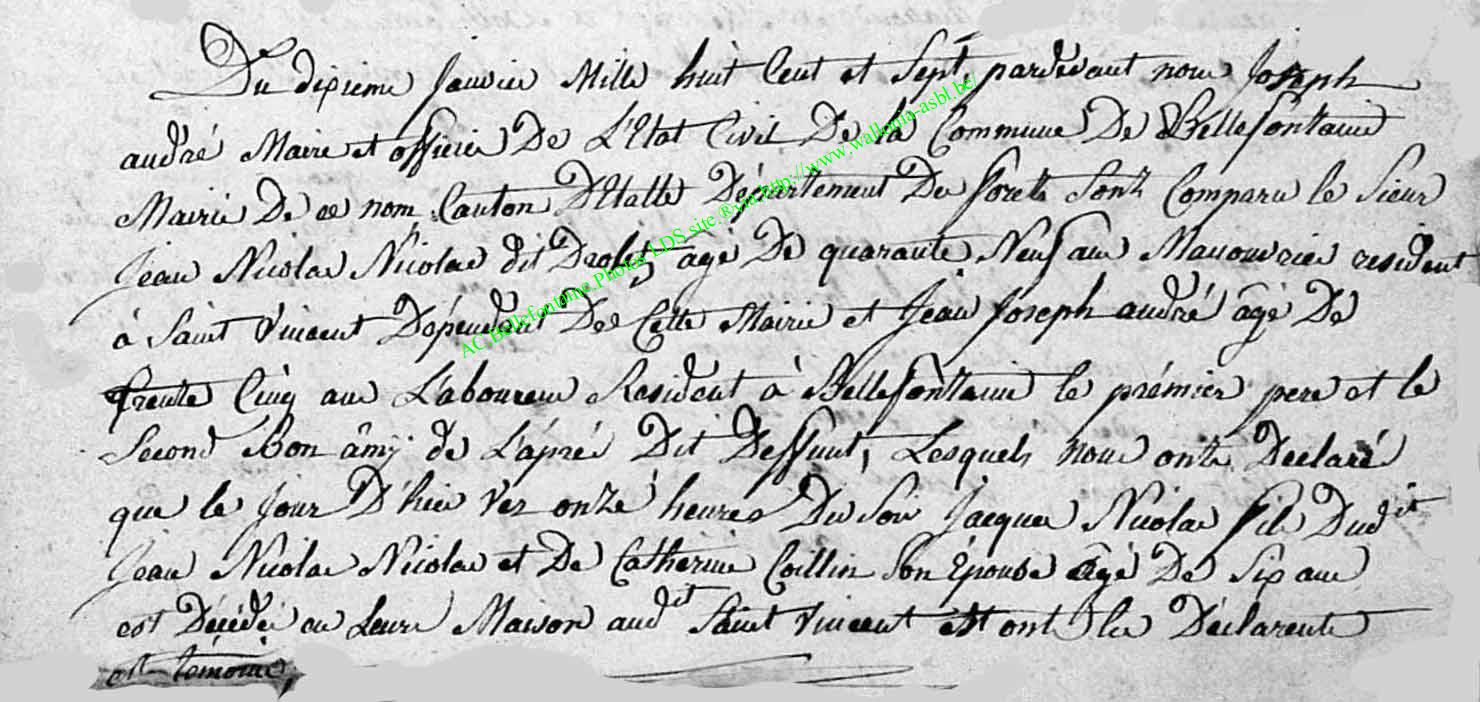 Du dixieme Janvier Mille huit Cent et Sept, pardevant nous Joseph
andré Maire et officier De L'Etat Civil De la Commune De Bellefontaine
Mairie De ce nom Canton D'Etalle Département Du forets Sont Comparu le Sieur
Jean Nicolas Nicolas dit Drolet, âgé De quarante Neuf ans Manouvrier resident
à Saint Vincent Dépendent De Cette Mairie et Jean Joseph andré âgé De
trente Cinq ans Laboureur Resident à Bellefontaine le prémier pere et le
Second Bon âmy de L'aprés Dit Deffunt, Lesquels nous onts Déclaré
que le Jour D'hier ver onze heures Du Soir Jacques Nicolas fils Dudit
Jean Nicolas Nicolas et De Catherine Coillin Son Epouse âgé De Six ans
est Décédé en Leure Maison audit Saint Vincent et ont les Déclarents
et temoins,
AC.Bellefontaine.Photos LDS site.®via.http://www.wallonia-asbl.be/